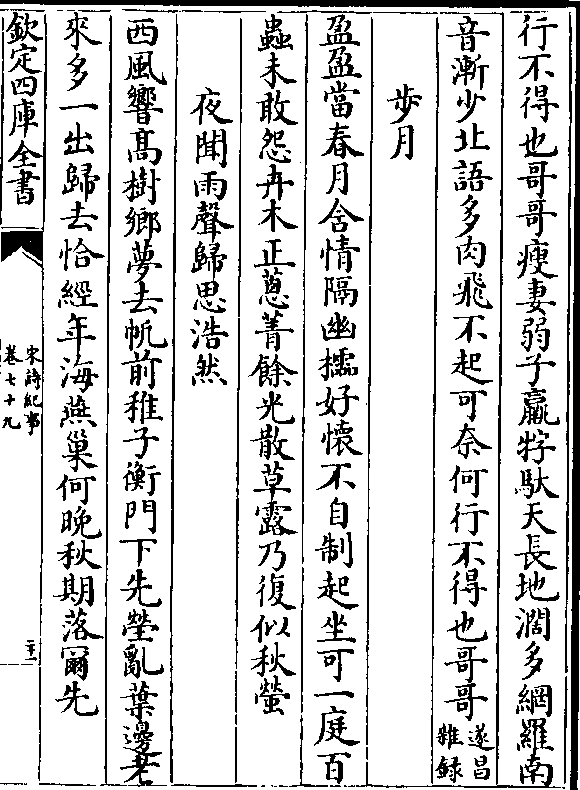 行不得也哥哥瘦妻弱子羸牸馱天長地濶多網羅南
音漸少北語多肉飛不起可奈何行不得也哥哥遂昌雜錄
歩月
盈盈當春月含情隔幽擂好懷不自制起坐可一庭百
蟲未敢怨卉木正蔥菁餘光散草露乃復似秋螢
夜聞雨聲歸思浩然
西風響髙樹鄉夢去帆前稚子衡門下先塋亂葉邊老
來多一出歸去恰經年海燕巢何晚秋期落爾先
欽定四庫全書
宋詩紀事
卷七十九
二十一